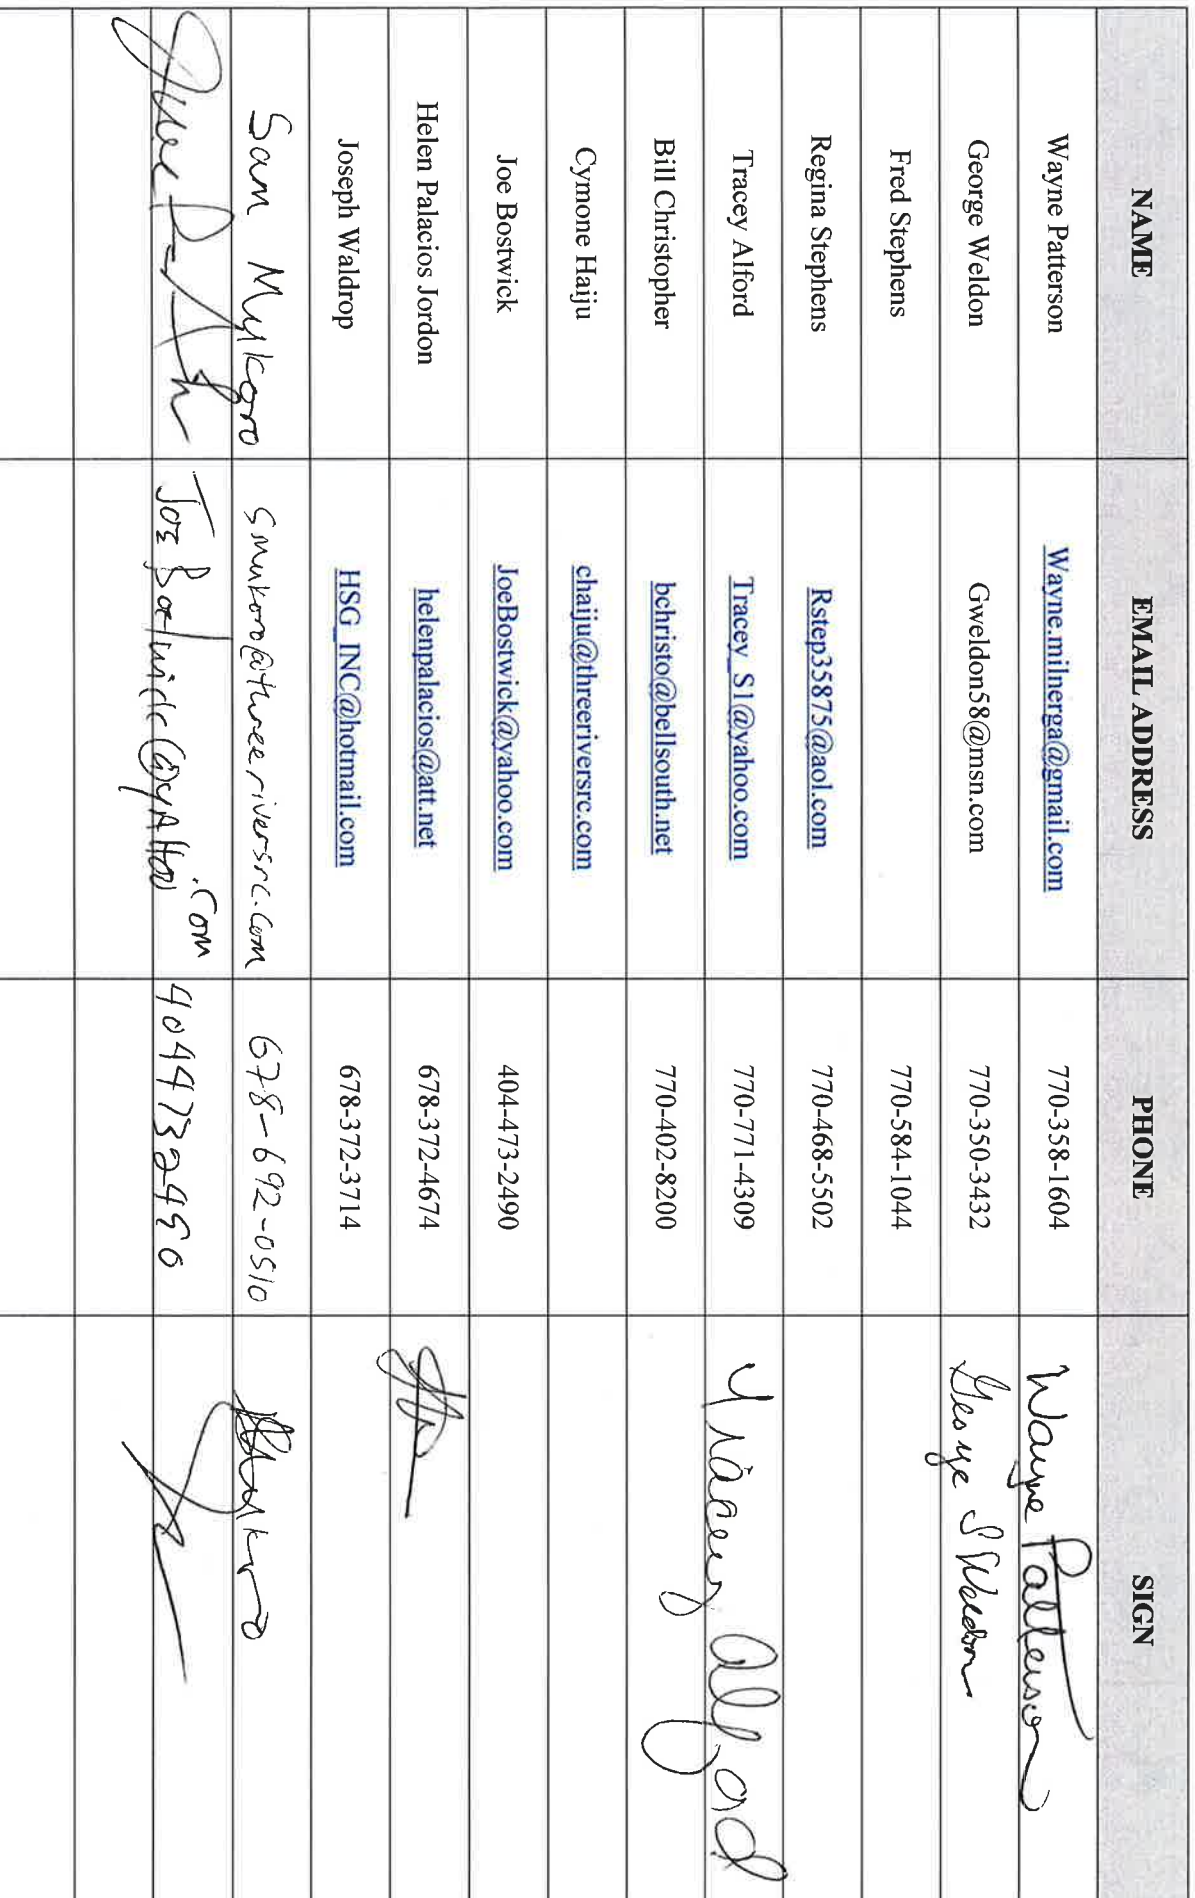 NAME EMAIL ADDRESS PHONE SIGN
Wayne Patterson Wayne.milnerga@gmail.com 770-358-1604 Wayne Patterson
George Weldon Gweldon58@msn.com 770-350-3432 George S Weldon
Fred Stephens 770-584-1044
Regina Stephens Rstep35875@aol.com 770-468-5502
Tracey Alford Tracey_S1@yahoo.com 770-771-4309 Tracey Alford
Bill Christopher bchristo@bellsouth.net 770-402-8200
Cymone Haiju chaiju@threeriversrc.com
Joe Bostwick JoeBostwick@yahoo.com 404-473-2490
Helen Palacios Jordon helenpalacios@att.net 678-372-4674
Joseph Waldrop HSG_INC@hotmail.com 678-372-3714
Sam Mukoro smukoro@threeriversrc.com 678-692-0510
JoeBostwick@yAHoo.Com 4044732490